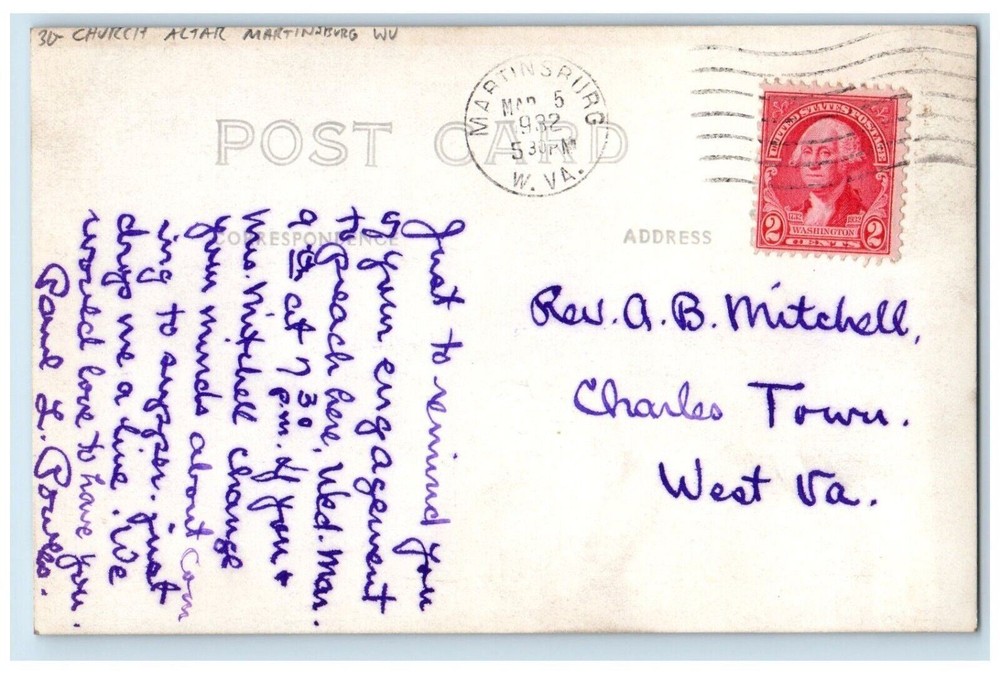 CHURCH ALTAR MARTINSBURG WV
POST CARD
MARTINSBURG
MAR 5
1932
5 30 PM
W. VA.
UNITED STATES POSTAGE
2 WASHINGTON 2
CENTS
CORRESPONDENCE
ADDRESS
Just to remind you
of your engagement
to preach here, Wed. Mar.
9th at 7 30 pm. If you +
Mrs. Mitchell change
your minds about com
ing to supper, just
drop me a line. We
would love to have you.
Paul L. Powles.
Rev. A. B. Mitchell,
Charles Town.
West Va.